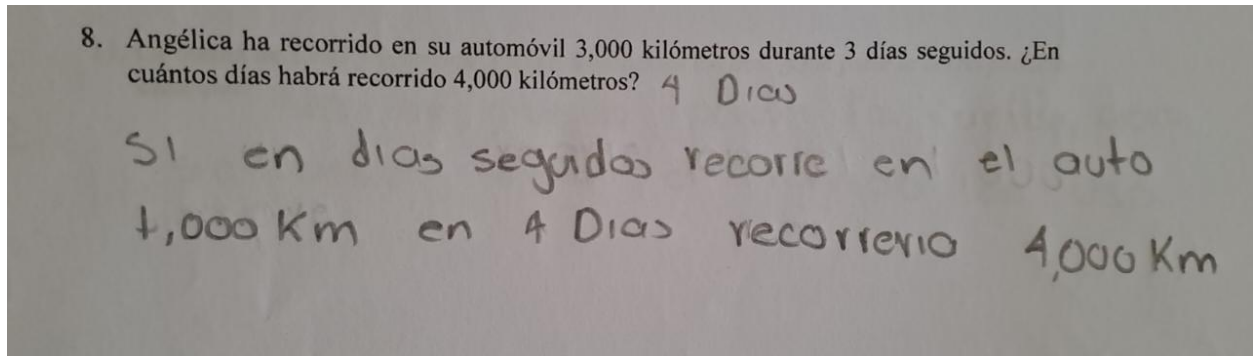 8. Angélica ha recorrido en su automóvil 3,000 kilómetros durante 3 días seguidos. ¿En
cuántos días habrá recorrido 4,000 kilómetros? 4 Dias
SI en dias seguidos recorre en el auto
1,000 Km en 4 Dias recorreria 4,000 Km